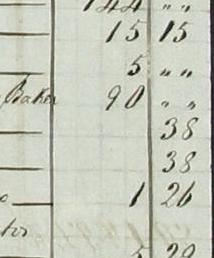 144 " "
15 15
5 " "
Baker 90 " "
38
38
1 26
5 29